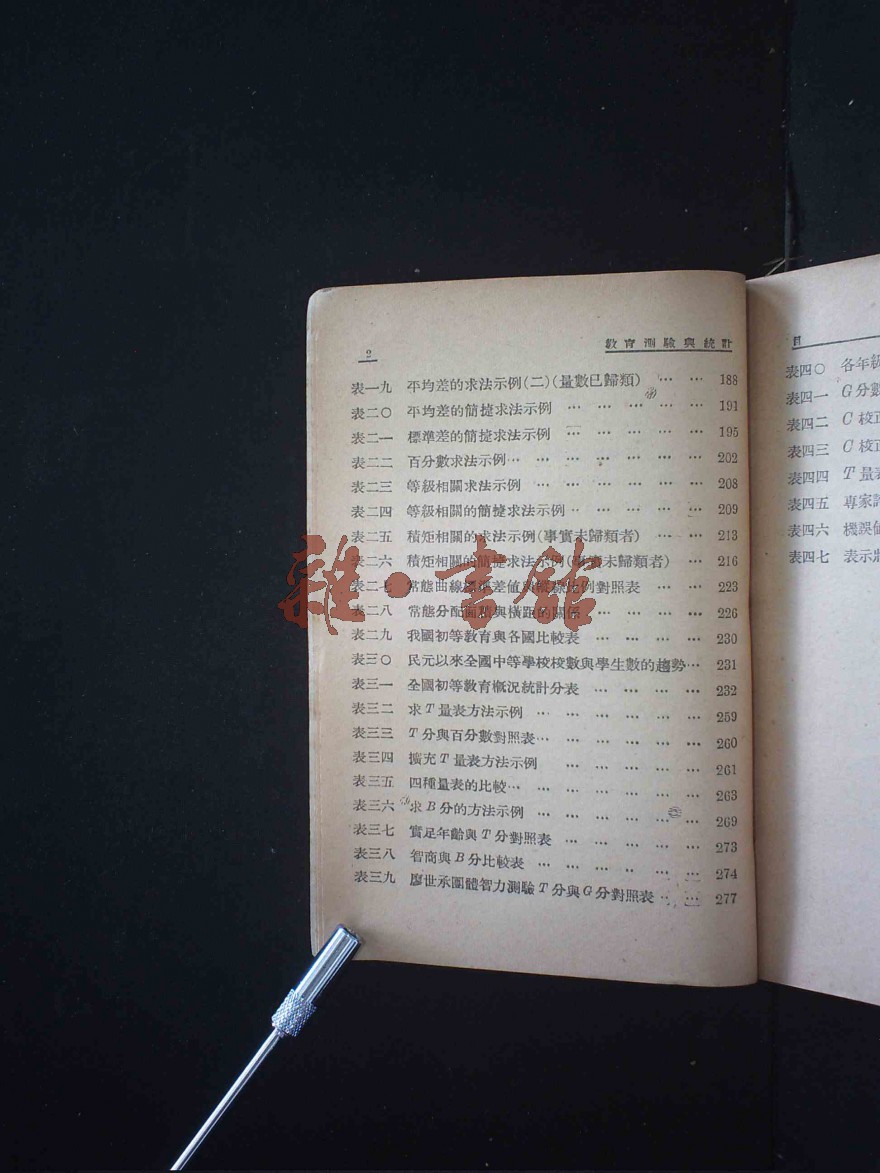 2
教育測驗與統計
表一九 平均差的求法示例(二)(量數已歸類) … … 188
表二〇 平均差的簡捷求法示例 … … … … … 191
表二一 標準差的簡捷求法示例 … … … … … 195
表二二 百分數求法示例… … … … … … … 202
表二三 等級相關求法示例 … … … … … … 208
表二四 等級相關的簡捷求法示例… … … … … 209
表二五 積矩相關的求法示例(事實未歸類者) … … 213
表二六 積矩相關的簡捷求法示例(事實未歸類者) … 216
表二七 常態曲線標準差值與 比例對照表 … … 223
表二八 常態分配面積與橫距的關係 … … … … 226
表二九 我國初等教育與各國比較表 … … … … 230
表三〇 民元以來全國中等學校校數與學生數的趨勢… 231
表三一 全國初等教育概況統計分表 … … … … 232
表三二 求T量表方法示例 … … … … … … 259
表三三 T分與百分數對照表… … … … … … 260
表三四 擴充T量表方法示例 … … … … … 261
表三五 四種量表的比較… … … … … … … 263
表三六 求B分的方法示例 … … … … … … 269
表三七 實足年齡與T分對照表 … … … … … 273
表三八 智商與B分比較表 … … … … … … 274
表三九 廖世承團體智力測驗T分與G分對照表 … … 277
目
表四〇 各年級
表四一 G分數
表四二 C校正
表四三 C校正
表四四 T量表
表四五 專家
表四六 機誤值
表四七 表示
雜·書館